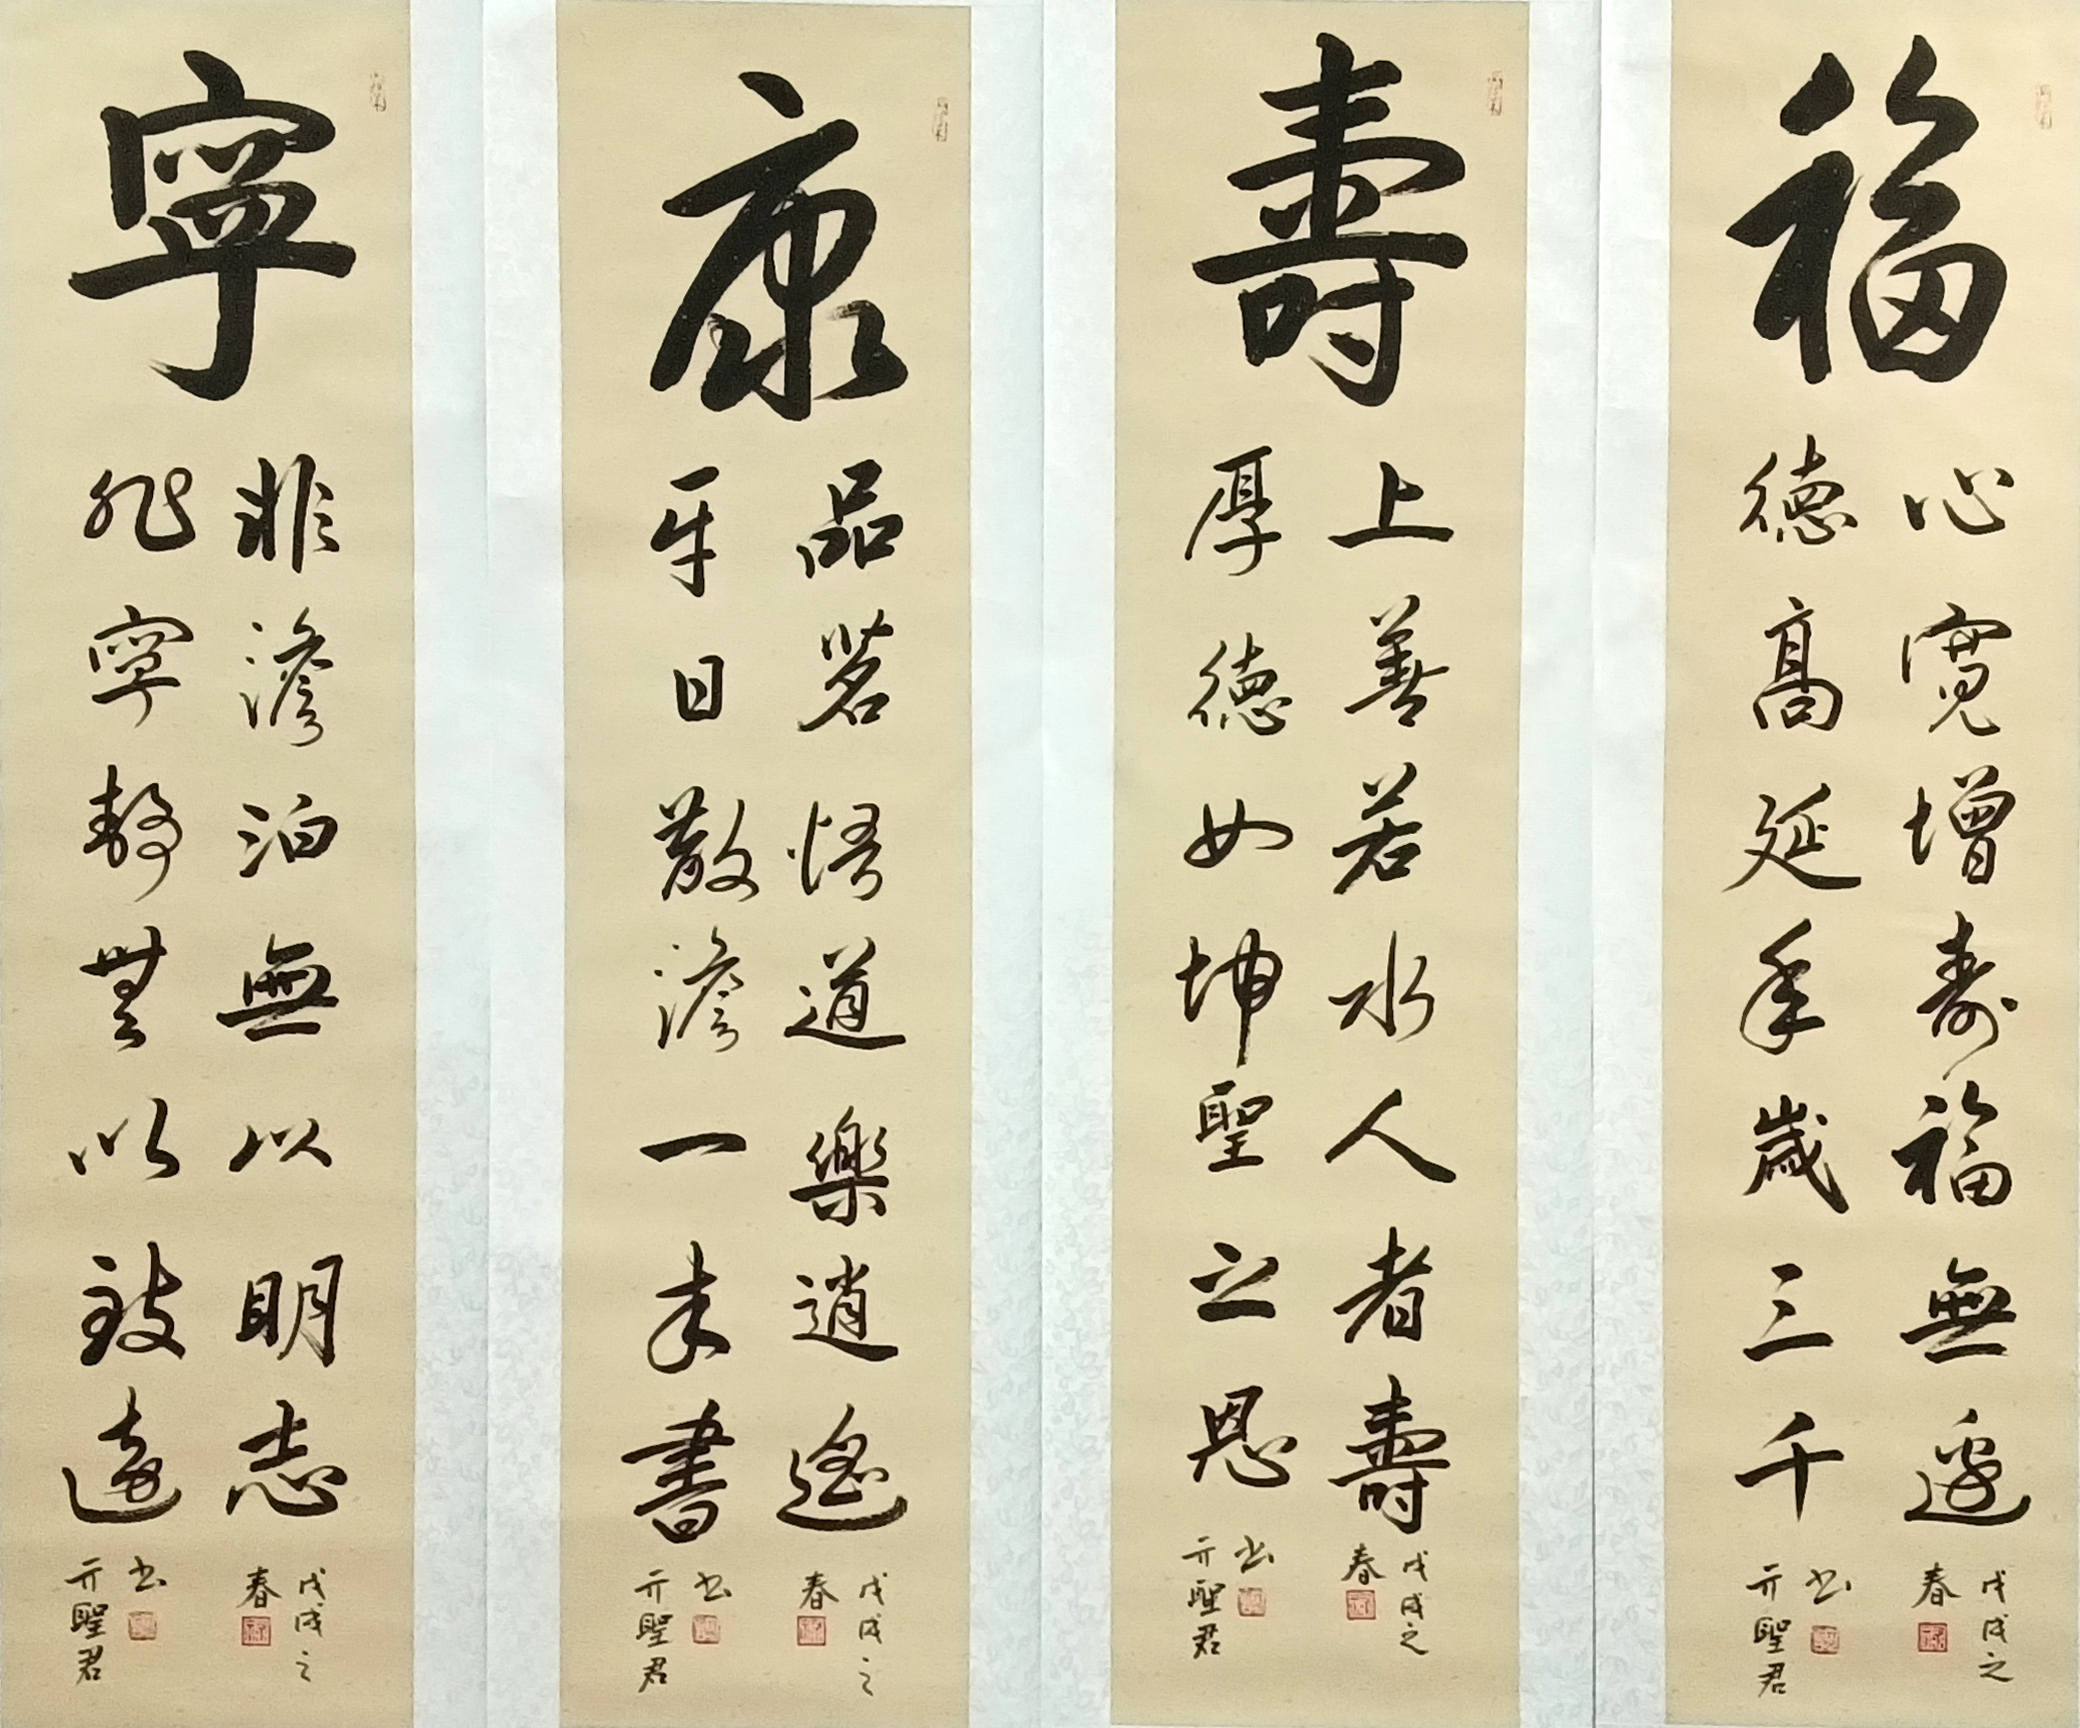 福
心寬增壽福無邊
德高延年歲三千
戊戌之
春
书
亓聖君
壽
上善若水人者壽
厚德如坤聖之恩
戊戌之
春
书
亓聖君
康
品茗悟道樂逍遙
半日散澹一本書
戊戌之
春
书
亓聖君
寧
非澹泊無以明志
非寧靜無以致遠
戊戌之
春
书
亓聖君